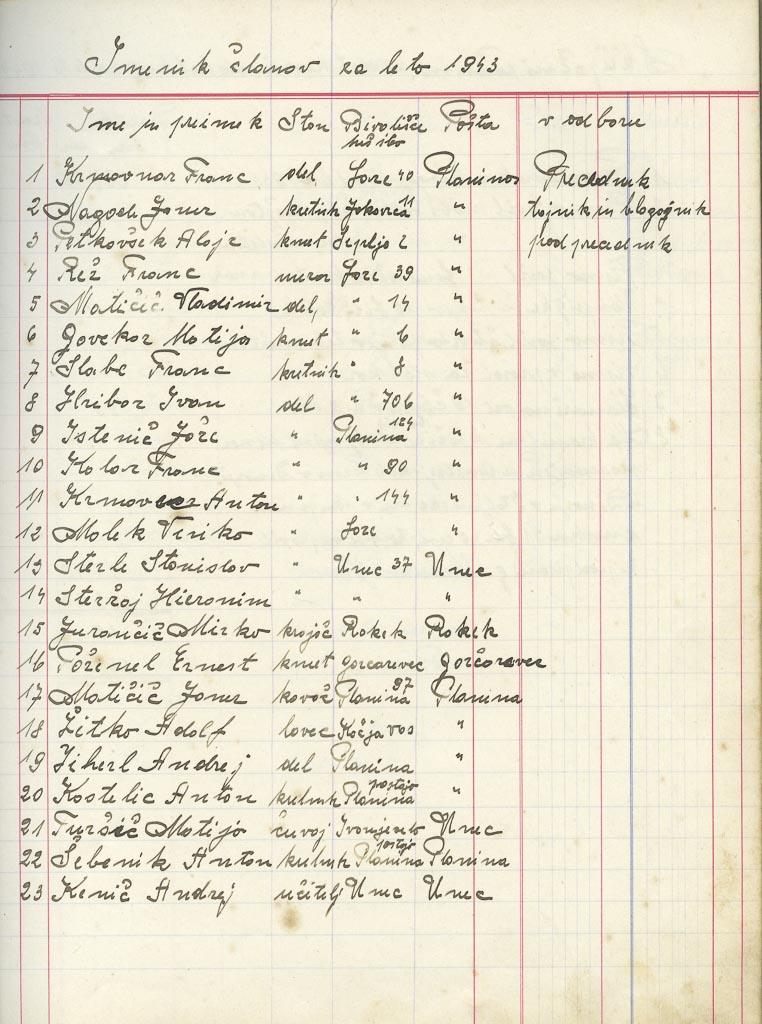 Imenik članov za leto 1943
Ime in priimek Stan Bivališče Pošta v odboru
hiš štv
1 Krmavnar Franc del Jore 40 Planinas Precednik
2 Nagode Janez kretnik Jakovica 11 " tajnik in blagajnik
3 Petkovšek Alojz kmet 2 " podprecednik
4 Rež Franc Jore 39 "
5 Matičič Vladimir del, " 14 "
6 Govekar Matija kmet " 6 "
7 Slabe Franc kretnik " 8 "
8 Hribar Ivan del " 706 "
9 Istenič Jože " Planina 124 "
10 Kolar Franc " " 90 "
11 Anton " " 144 "
12 Molek Vinko " Jore "
13 Sterle Stanislav " Unec 37 Unec
14 Steržaj Hieronim " " "
15 Jurančič Mirko krojač Rakek Rakek
16 Poženel Ernest kmet gorearevec Gorčarevec
17 Matičič Janez kovač Planina 97 Planina
18 Žitko Adolf lovec Kačja vas "
19 Žiherl Andrej del Planina "
20 Kostelic Anton Planina postaja "
21 Turšič Matija čuvaj Unec
22 Šebenik Anton Planina postaja Planina
23 Kenič Andrej učitelj Unec Unec